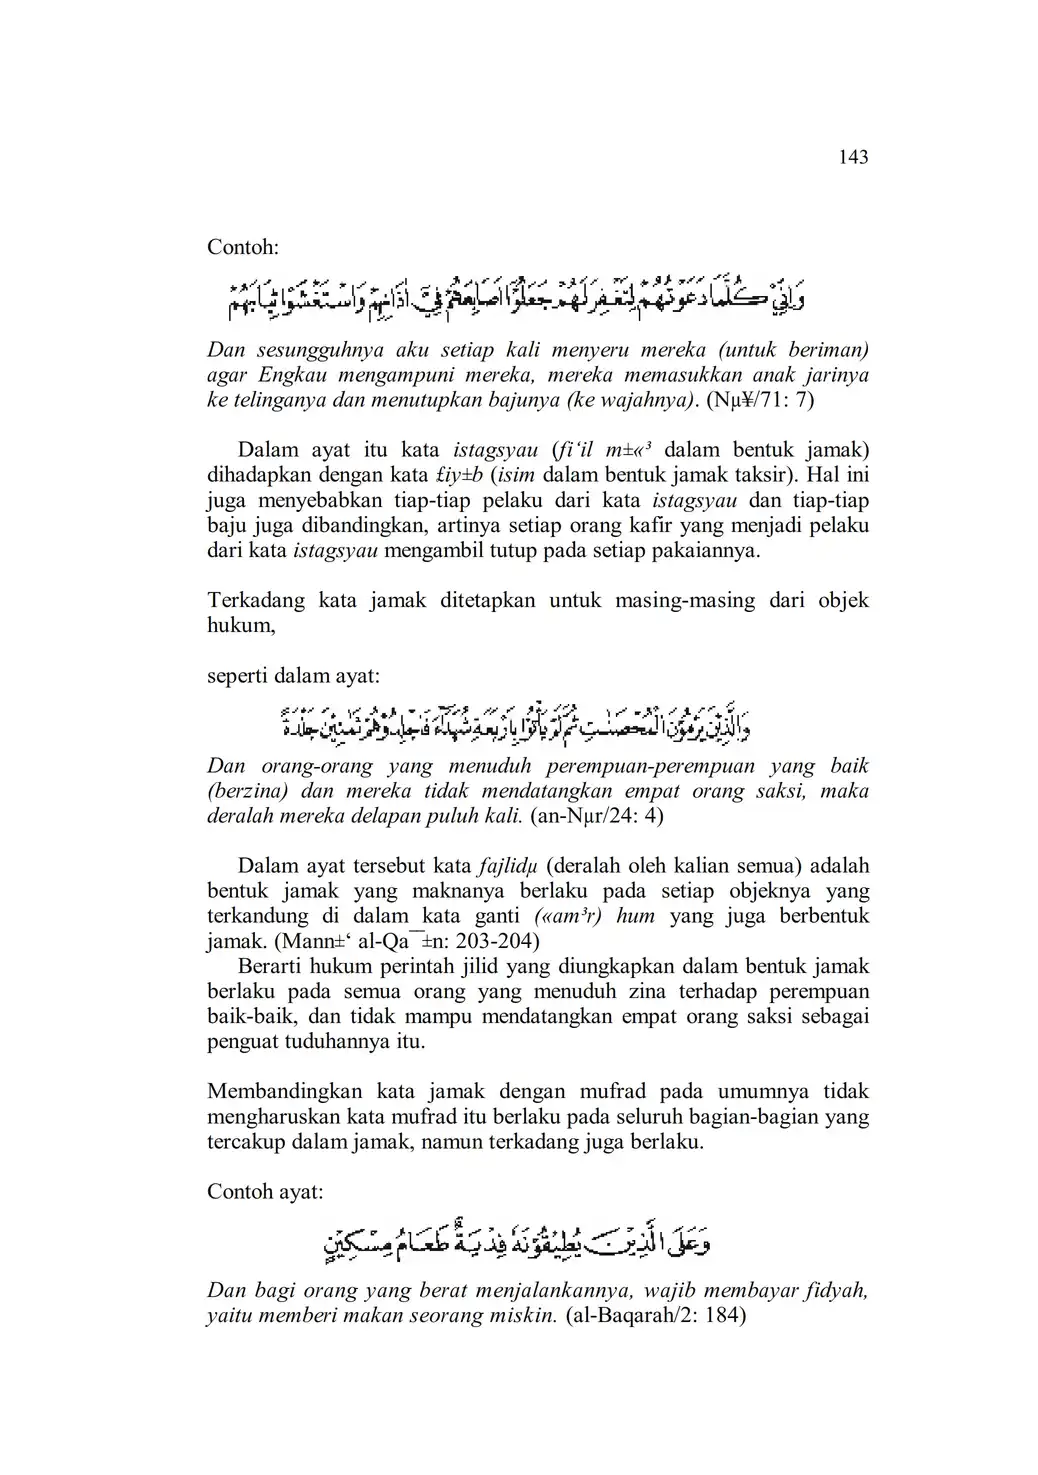 143
Contoh:
وَاِنِّيْ كُلَّمَا دَعَوْتُهُمْ لِتَغْفِرَ لَهُمْ جَعَلُوْٓا اَصَابِعَهُمْ فِيْٓ اٰذَانِهِمْ وَاسْتَغْشَوْا ثِيَابَهُمْ
Dan sesungguhnya aku setiap kali menyeru mereka (untuk beriman)
agar Engkau mengampuni mereka, mereka memasukkan anak jarinya
ke telinganya dan menutupkan bajunya (ke wajahnya). (Nµ¥/71: 7)
Dalam ayat itu kata istagsyau (fi‘il m±«³ dalam bentuk jamak)
dihadapkan dengan kata £iy±b (isim dalam bentuk jamak taksir). Hal ini
juga menyebabkan tiap-tiap pelaku dari kata istagsyau dan tiap-tiap
baju juga dibandingkan, artinya setiap orang kafir yang menjadi pelaku
dari kata istagsyau mengambil tutup pada setiap pakaiannya.
Terkadang kata jamak ditetapkan untuk masing-masing dari objek
hukum,
seperti dalam ayat:
وَالَّذِيْنَ يَرْمُوْنَ الْمُحْصَنٰتِ ثُمَّ لَمْ يَأْتُوْا بِاَرْبَعَةِ شُهَدَاۤءَ فَاجْلِدُوْهُمْ ثَمٰنِيْنَ جَلْدَةً
Dan orang-orang yang menuduh perempuan-perempuan yang baik
(berzina) dan mereka tidak mendatangkan empat orang saksi, maka
deralah mereka delapan puluh kali. (an-Nµr/24: 4)
Dalam ayat tersebut kata fajlidµ (deralah oleh kalian semua) adalah
bentuk jamak yang maknanya berlaku pada setiap objeknya yang
terkandung di dalam kata ganti («am³r) hum yang juga berbentuk
jamak. (Mann±‘ al-Qa¯¯±n: 203-204)
Berarti hukum perintah jilid yang diungkapkan dalam bentuk jamak
berlaku pada semua orang yang menuduh zina terhadap perempuan
baik-baik, dan tidak mampu mendatangkan empat orang saksi sebagai
penguat tuduhannya itu.
Membandingkan kata jamak dengan mufrad pada umumnya tidak
mengharuskan kata mufrad itu berlaku pada seluruh bagian-bagian yang
tercakup dalam jamak, namun terkadang juga berlaku.
Contoh ayat:
وَعَلَى الَّذِيْنَ يُطِيْقُوْنَهٗ فِدْيَةٌ طَعَامُ مِسْكِيْنٍ
Dan bagi orang yang berat menjalankannya, wajib membayar fidyah,
yaitu memberi makan seorang miskin. (al-Baqarah/2: 184)